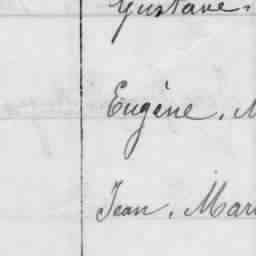 Gustave.
Eugène. M
Jean. Mar